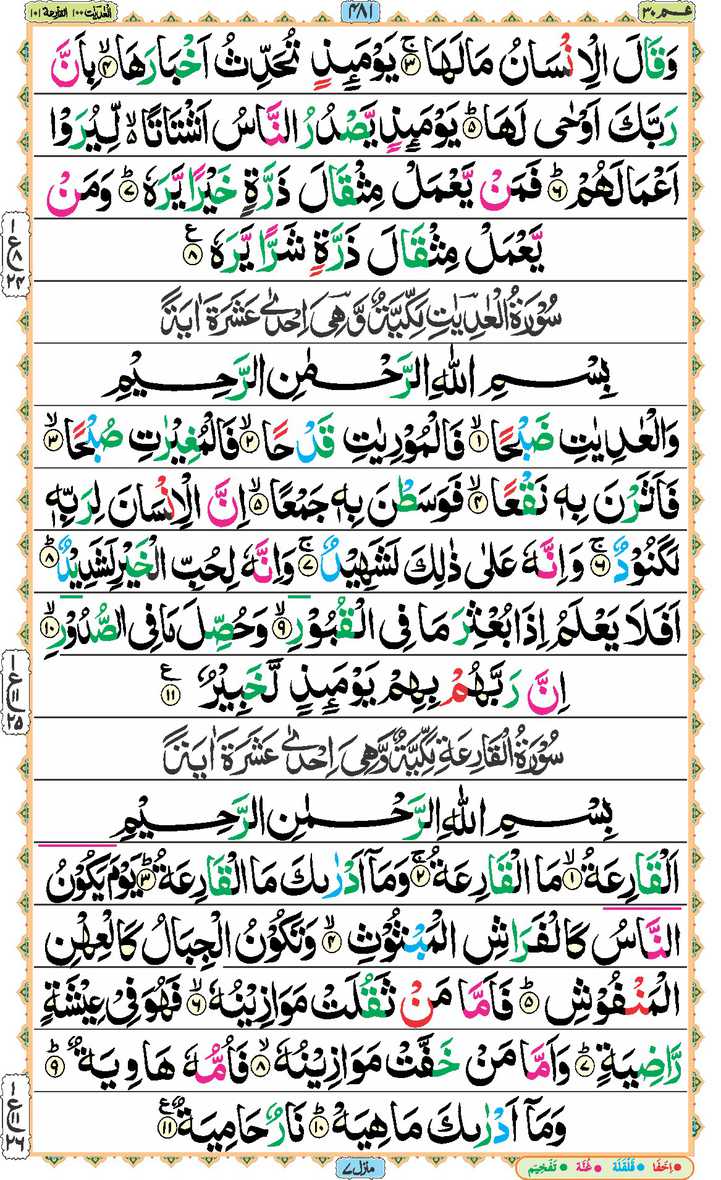 عـــم ٣٠
٤٨١
العٰدیٰت ١٠٠ القارعة ١٠١
وَقَالَ الْاِنْسَانُ مَا لَهَا ۚ﴿٣﴾ يَوْمَئِذٍ تُحَدِّثُ اَخْبَارَهَا ۙ﴿٤﴾ بِاَنَّ
رَبَّكَ اَوْحٰى لَهَا ؕ﴿٥﴾ يَوْمَئِذٍ يَّصْدُرُ النَّاسُ اَشْتَاتًا ۙ۬ لِّيُرَوْا
اَعْمَالَهُمْ ؕ﴿٦﴾ فَمَنْ يَّعْمَلْ مِثْقَالَ ذَرَّةٍ خَيْرًا يَّرَهٗ ؕ﴿٧﴾ وَمَنْ
يَّعْمَلْ مِثْقَالَ ذَرَّةٍ شَرًّا يَّرَهٗ ﴿٨﴾ ع
١ ع ٨ ٢٤
سُوْرَةُ الْعٰدِيٰتِ مَكِّيَّةٌ وَّهِىَ اِحْدٰى عَشَرَةَ اٰيَةً
بِسْمِ اللهِ الرَّحْمٰنِ الرَّحِيْمِ
وَالْعٰدِيٰتِ ضَبْحًا ۙ﴿١﴾ فَالْمُوْرِيٰتِ قَدْحًا ۙ﴿٢﴾ فَالْمُغِيْرٰتِ صُبْحًا ۙ﴿٣﴾
فَاَثَرْنَ بِهٖ نَقْعًا ۙ﴿٤﴾ فَوَسَطْنَ بِهٖ جَمْعًا ۙ﴿٥﴾ اِنَّ الْاِنْسَانَ لِرَبِّهٖ
لَكَنُوْدٌ ۚ﴿٦﴾ وَاِنَّهٗ عَلٰى ذٰلِكَ لَشَهِيْدٌ ۚ﴿٧﴾ وَاِنَّهٗ لِحُبِّ الْخَيْرِ لَشَدِيْدٌ ؕ﴿٨﴾
اَفَلَا يَعْلَمُ اِذَا بُعْثِرَ مَا فِى الْقُبُوْرِ ۙ﴿٩﴾ وَحُصِّلَ مَا فِى الصُّدُوْرِ ۙ﴿١٠﴾
اِنَّ رَبَّهُمْ بِهِمْ يَوْمَئِذٍ لَّخَبِيْرٌ ﴿١١﴾ ع
١ ع ١١ ٢٥
سُوْرَةُ الْقَارِعَةِ مَكِّيَّةٌ وَّهِىَ اِحْدٰى عَشَرَةَ اٰيَةً
بِسْمِ اللهِ الرَّحْمٰنِ الرَّحِيْمِ
اَلْقَارِعَةُ ۙ﴿١﴾ مَا الْقَارِعَةُ ۚ﴿٢﴾ وَمَاۤ اَدْرٰىكَ مَا الْقَارِعَةُ ؕ﴿٣﴾ يَوْمَ يَكُوْنُ
النَّاسُ كَالْفَرَاشِ الْمَبْثُوْثِ ۙ﴿٤﴾ وَتَكُوْنُ الْجِبَالُ كَالْعِهْنِ
الْمَنْفُوْشِ ؕ﴿٥﴾ فَاَمَّا مَنْ ثَقُلَتْ مَوَازِيْنُهٗ ۙ﴿٦﴾ فَهُوَ فِىْ عِيْشَةٍ
رَّاضِيَةٍ ؕ﴿٧﴾ وَاَمَّا مَنْ خَفَّتْ مَوَازِيْنُهٗ ۙ﴿٨﴾ فَاُمُّهٗ هَاوِيَةٌ ؕ﴿٩﴾
وَمَاۤ اَدْرٰىكَ مَا هِيَهْ ؕ﴿١٠﴾ نَارٌ حَامِيَةٌ ﴿١١﴾ ع
١ ع ١١ ٢٦
منزل ٧
● اِخفَا ● قَلْقَلَة ● غُنَّة ● تَفْخِیْم